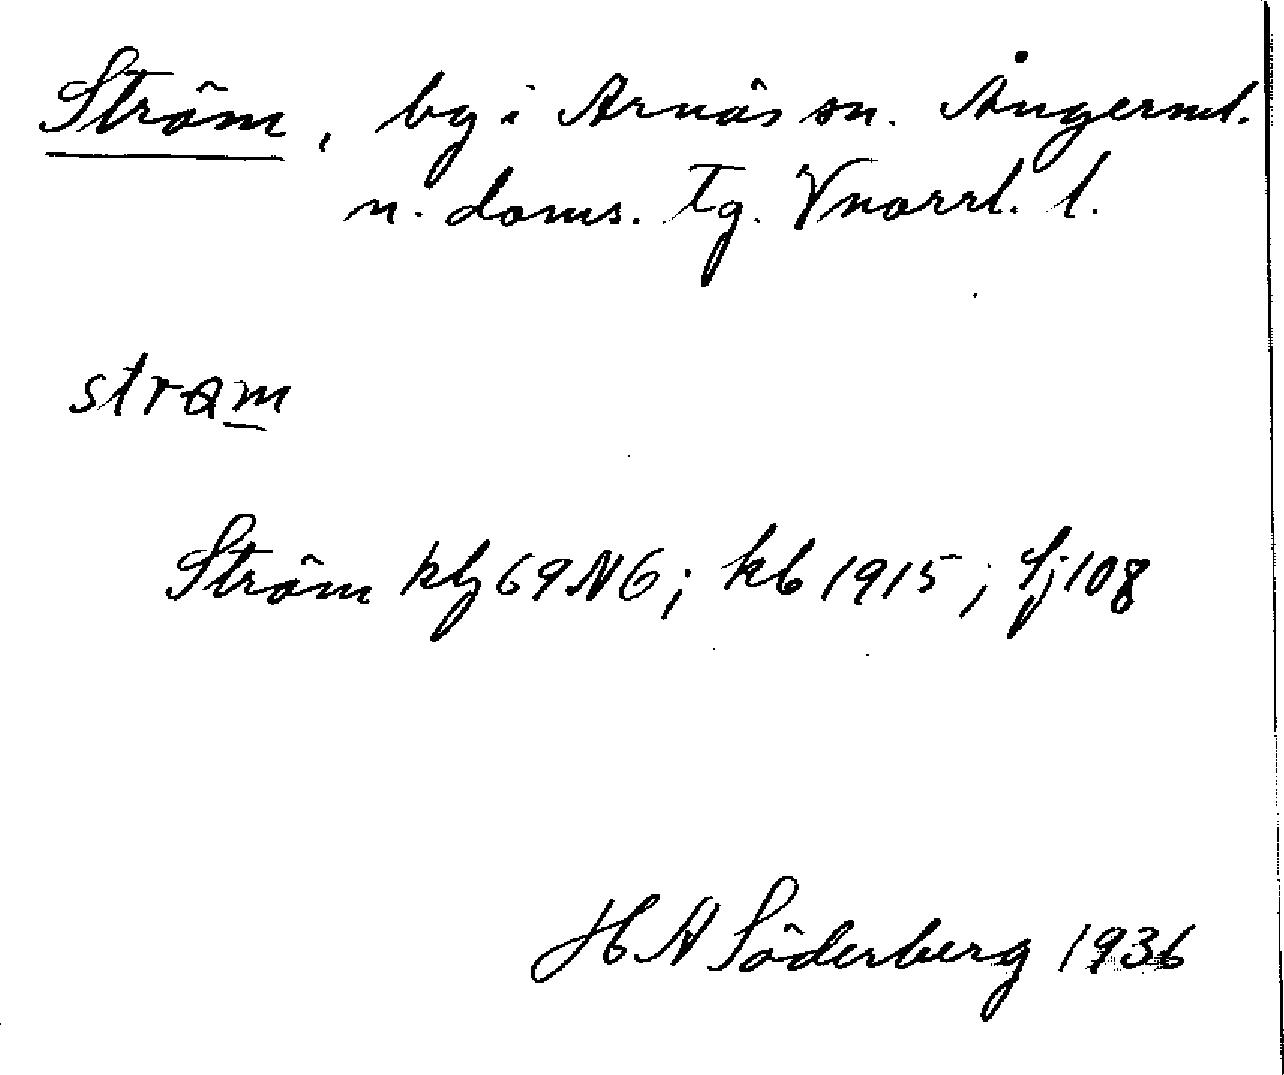 Ström, by i Arnäs sn. Ångerml.
n. doms. tg. Vnorrl. l.
strøm
Ström kbl 69 N6; kb 1915; Sj 108
H A Söderberg 1936